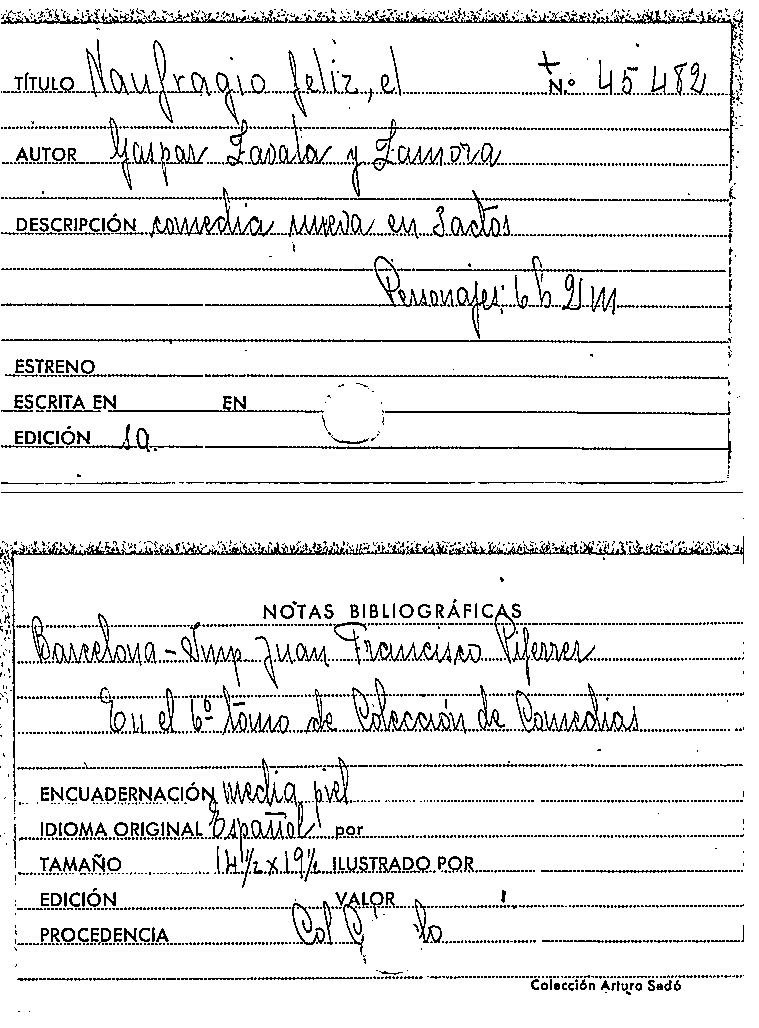 TÍTULO Naufragio feliz, el + N.º 45482
AUTOR Gaspar Zavala y Zamora
DESCRIPCIÓN comedia nueva en 3 actos
Personajes: 6 h 2 m
ESTRENO
ESCRITA EN EN
EDICIÓN sa.
NOTAS BIBLIOGRÁFICAS
Barcelona - Imp Juan Francisco Piferrer
En el 6º tomo de Colección de Comedias
ENCUADERNACIÓN media piel
IDIOMA ORIGINAL Español por
TAMAÑO 14½ x 19½ ILUSTRADO POR
EDICIÓN VALOR
PROCEDENCIA Col
Colección Arturo Sedó